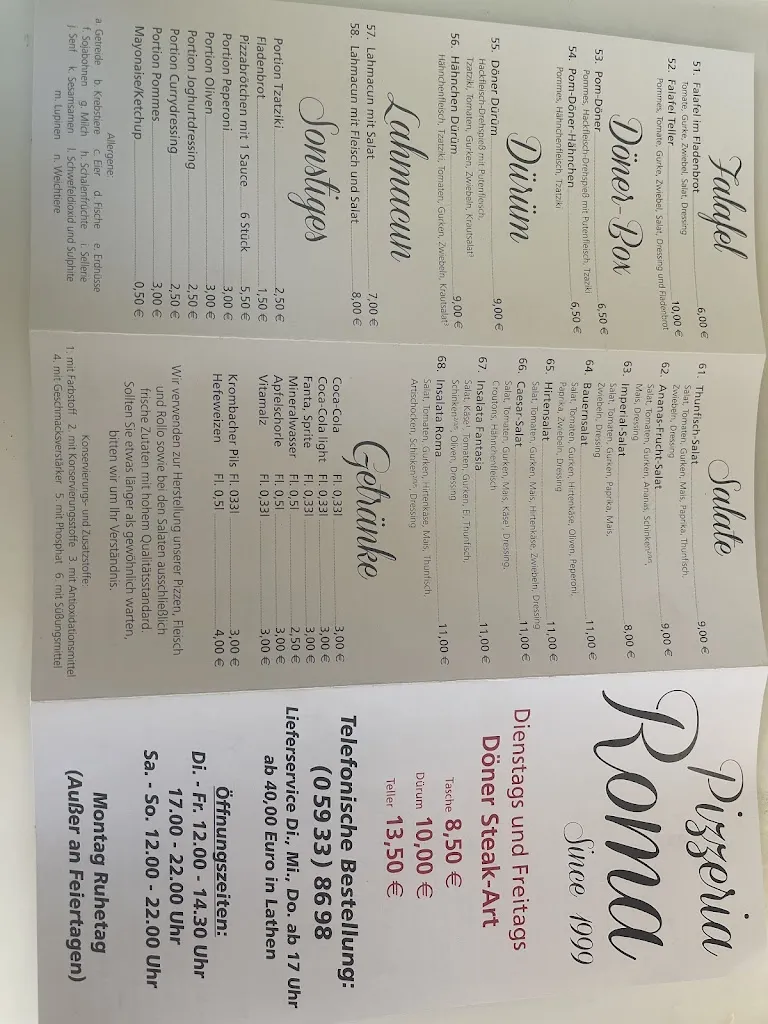 Falafel
51. Falafel im Fladenbrot 6,00 €
Tomate, Gurke, Zwiebel, Salat, Dressing
52. Falafel Teller 10,00 €
Pommes, Tomate, Gurke, Zwiebel, Salat, Dressing und Fladenbrot
Döner-Box
53. Pom-Döner 6,50 €
Pommes, Hackfleisch-Drehspieß mit Putenfleisch, Tzaziki
54. Pom-Döner-Hähnchen 6,50 €
Pommes, Hähnchenfleisch, Tzatziki
Dürüm
55. Döner Dürüm 9,00 €
Hackfleisch-Drehspieß mit Putenfleisch,
Tzatziki, Tomaten, Gurken, Zwiebeln, Krautsalat³
56. Hähnchen Dürüm 9,00 €
Hähnchenfleisch, Tzatziki, Tomaten, Gurken, Zwiebeln, Krautsalat³
Lahmacun
57. Lahmacun mit Salat 7,00 €
58. Lahmacun mit Fleisch und Salat 8,00 €
Sonstiges
Portion Tzatziki 2,50 €
Fladenbrot 1,50 €
Pizzabrötchen mit 1 Sauce 6 Stück 5,50 €
Portion Peperoni 3,00 €
Portion Oliven 3,00 €
Portion Joghurtdressing 2,50 €
Portion Currydressing 2,50 €
Portion Pommes 3,00 €
Mayonaise/Ketchup 0,50 €
Allergene:
a. Getreide b. Krebstiere c. Eier d. Fische e. Erdnüsse
f. Sojabohnen g. Milch h. Schalenfrüchte i. Sellerie
j. Senf k. Sesamsamen l. Schwefeldioxid und Sulphite
m. Lupinen n. Weichtiere
Salate
61. Thunfisch-Salat 9,00 €
Salat, Tomaten, Gurken, Mais, Paprika, Thunfisch,
Zwiebeln, Dressing
62. Ananas-Frucht-Salat 9,00 €
Salat, Tomaten, Gurken, Ananas, Schinken
Mais, Dressing
63. Imperial-Salat 8,00 €
Salat, Tomaten, Gurken, Paprika, Mais,
Zwiebeln, Dressing
64. Bauernsalat 11,00 €
Salat, Tomaten, Gurken, Hirtenkäse, Oliven, Peperoni,
Paprika, Zwiebeln, Dressing
65. Hirtensalat 11,00 €
Salat, Tomaten, Gurken, Mais, Hirtenkäse, Zwiebeln, Dressing
66. Caesar-Salat 11,00 €
Salat, Tomaten, Gurken, Mais, Käse¹, Dressing,
Croutons, Hähnchenfleisch
67. Insalata Fantasia 11,00 €
Salat, Käse¹, Tomaten, Gurken, Ei, Thunfisch,
Schinken, Oliven, Dressing
68. Insalata Roma 11,00 €
Salat, Tomaten, Gurken, Hirtenkäse, Mais, Thunfisch,
Artischocken, Schinken, Dressing
Getränke
Coca-Cola Fl. 0,33l 3,00 €
Coca-Cola light Fl. 0,33l 3,00 €
Fanta, Sprite Fl. 0,33l 3,00 €
Mineralwasser Fl. 0,5l 2,50 €
Apfelschorle Fl. 0,5l 3,00 €
Vitamalz Fl. 0,33l 3,00 €
Krombacher Pils Fl. 033l 3,00 €
Hefeweizen Fl. 0,5l 4,00 €
Wir verwenden zur Herstellung unserer Pizzen, Fleisch
und Rollo sowie bei den Salaten ausschließlich
frische Zutaten mit hohem Qualitätsstandard.
Sollten Sie etwas länger als gewöhnlich warten,
bitten wir um Ihr Verständnis.
Konservierungs- und Zusatzstoffe:
1: mit Farbstoff 2. mit Konservierungsstoffe 3. mit Antioxidationsmittel
4. mit Geschmacksverstärker 5. mit Phosphat 6. mit Süßungsmittel
Pizzeria
Roma
Since 1999
Dienstags und Freitags
Döner Steak-Art
Tasche 8,50 €
Dürum 10,00 €
Teller 13,50 €
Telefonische Bestellung:
(0 59 33) 86 98
Lieferservice Di., Mi., Do. ab 17 Uhr
ab 40,00 Euro in Lathen
Öffnungszeiten:
Di. - Fr. 12.00 - 14.30 Uhr
17.00 - 22.00 Uhr
Sa. - So. 12.00 - 22.00 Uhr
Montag Ruhetag
(Außer an Feiertagen)